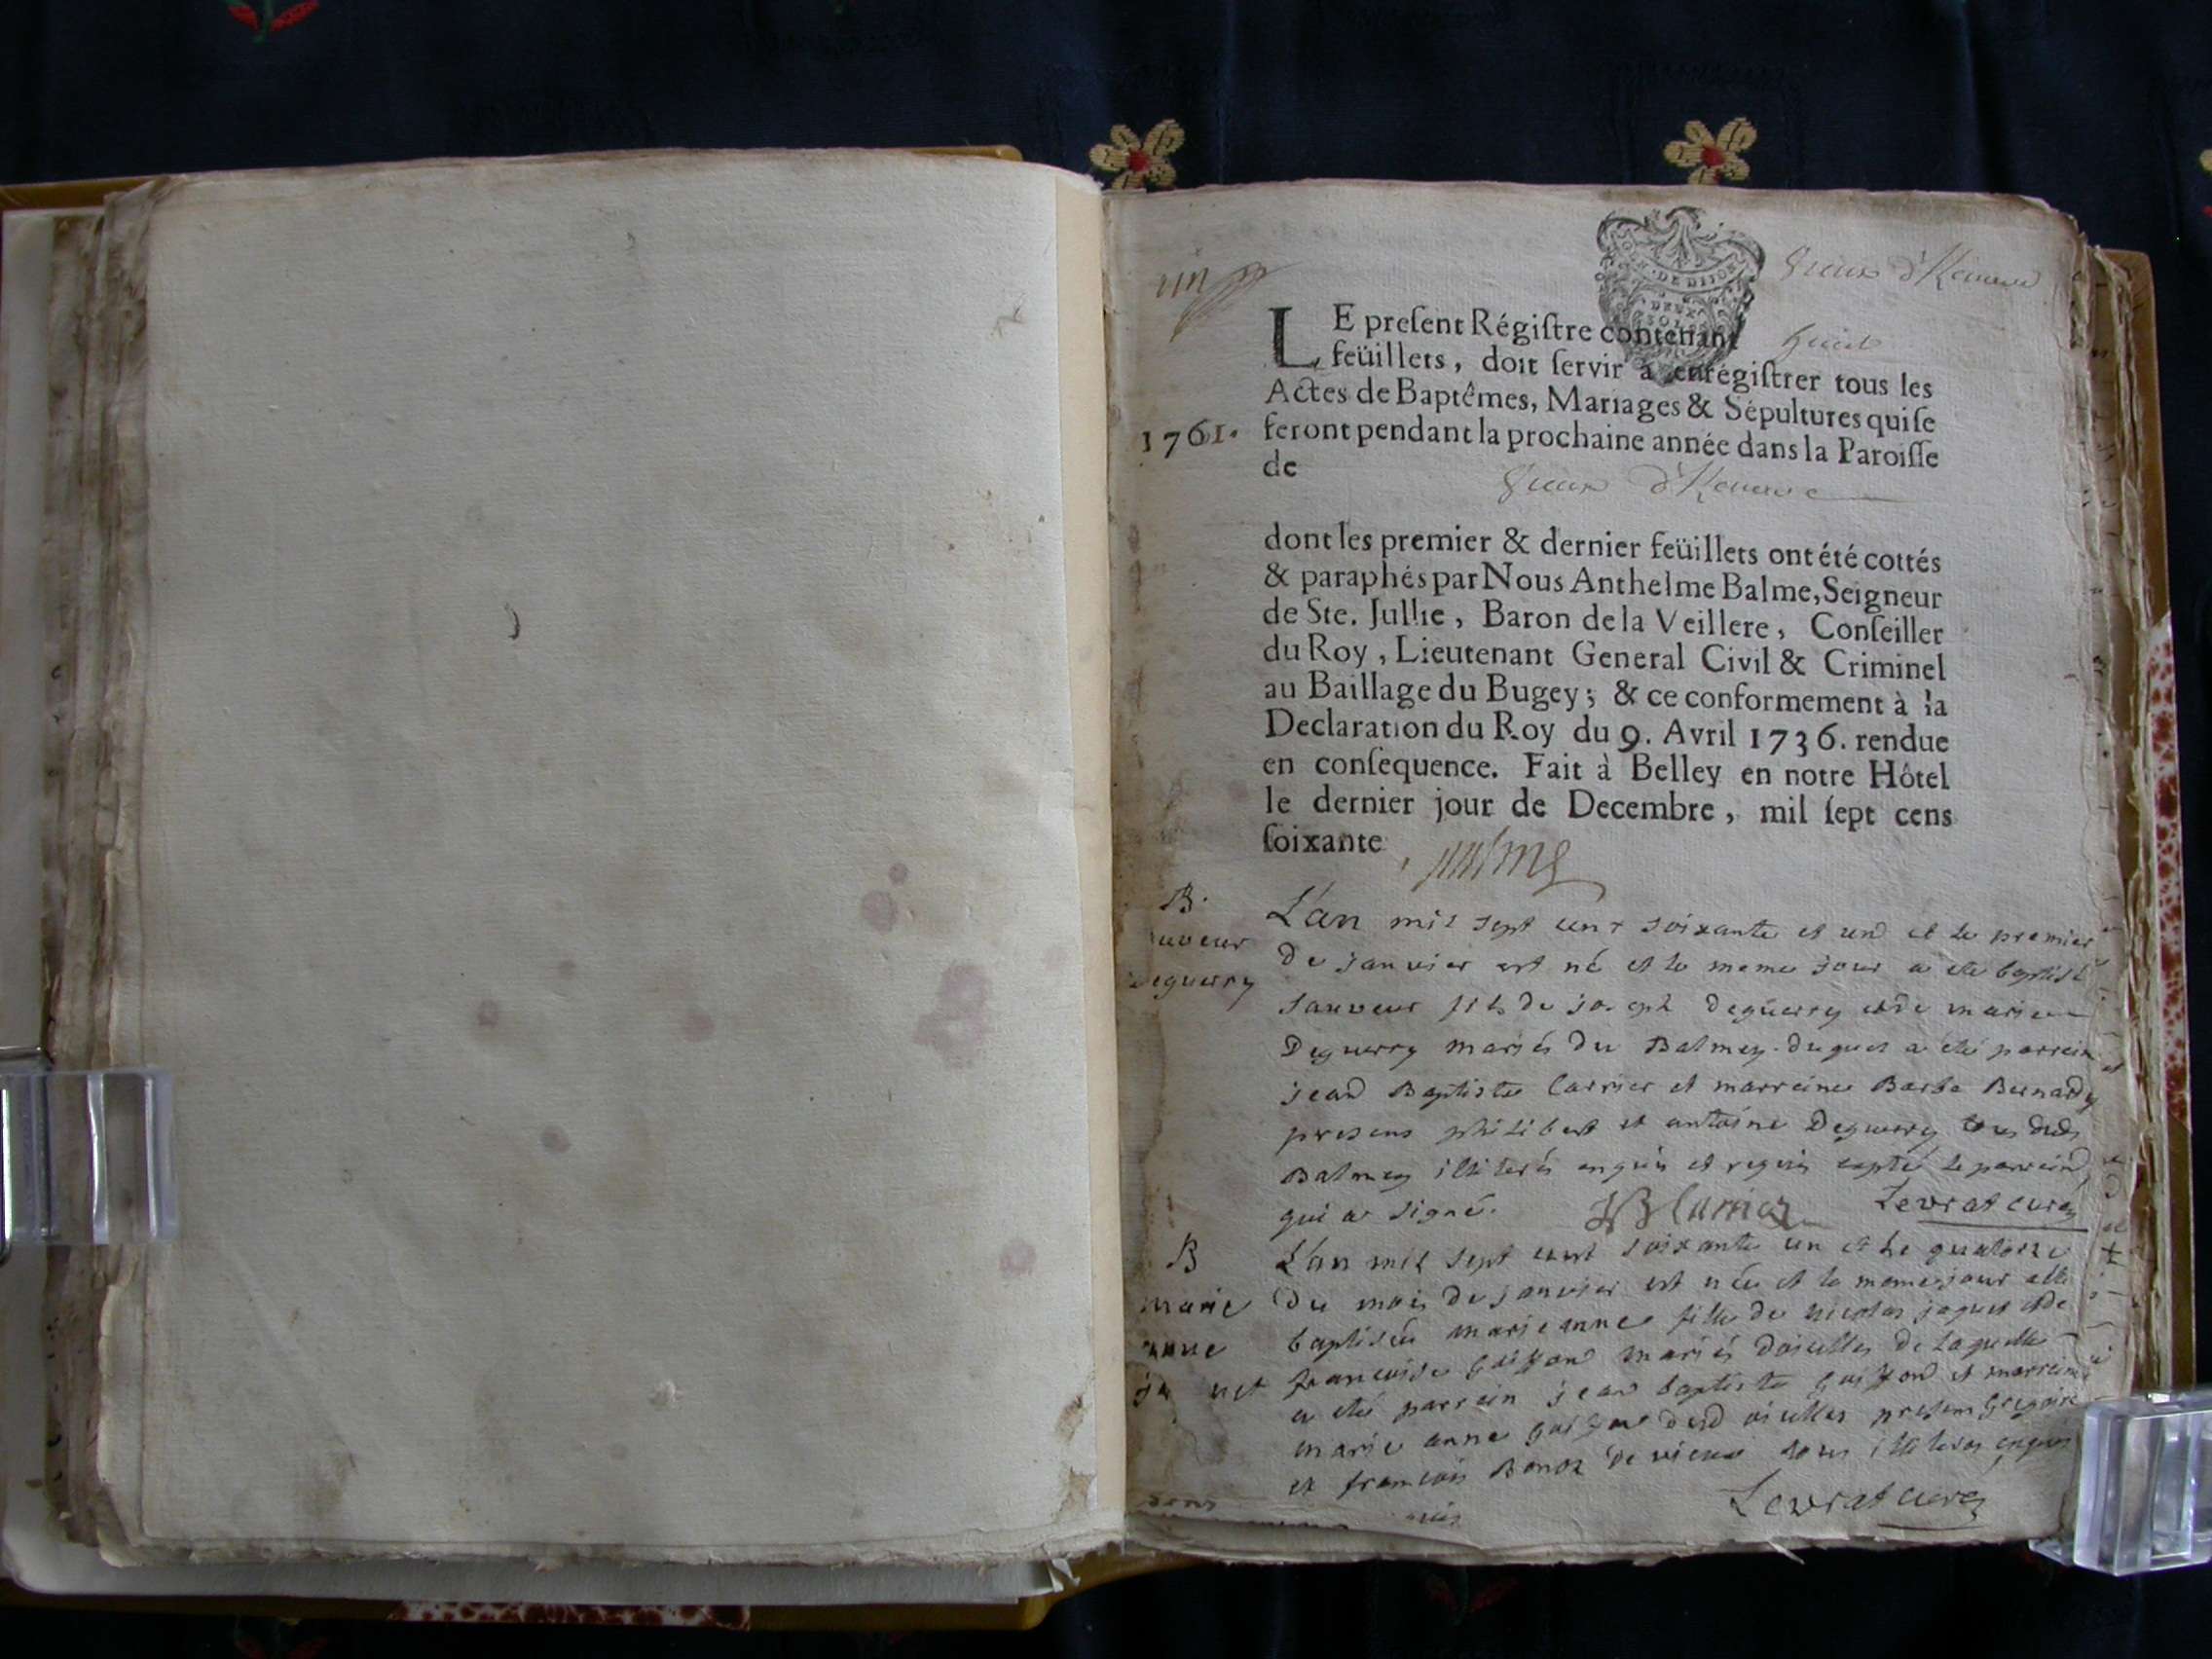 GEN. DE DIJON
DEUX
SOLS
Vieux d'Izenave
LE preſent Régiſtre contenant huit
feüillets, doit ſervir à enrégiſtrer tous les
Actes de Baptêmes, Mariages & Sépultures qui ſe
1761. feront pendant la prochaine année dans la Paroiſſe
de Vieux d'Izenave
dont les premier & dernier feüillets ont été cottés
& paraphés par Nous Anthelme Balme, Seigneur
de Ste. Jullie, Baron de la Veillere, Conſeiller
du Roy, Lieutenant General Civil & Criminel
au Baillage du Bugey; & ce conformement à la
Declaration du Roy du 9. Avril 1736. rendue
en conſequence. Fait à Belley en notre Hôtel
le dernier jour de Decembre, mil ſept cens
ſoixante Balme
B.
uveur
Deguerry
L'an mil sept cent soixante et un et le premier
de janvier est né et le meme jour a eté baptisé
sauveur fils de joseph Deguerry et de marie
Deguerry mariés du Balmey duquel a été parrein
jean Baptiste Carrier et marreine Barbe Bernardy
presens philibert et antoine Deguerry tous dud
Balmey illiterés enquis et requis excepté le parrein
qui a signé. JB Carrier Levrat curé
B
marie
anne
L'an mil sept cent soixante un et le quatorze
du mois de janvier est née et le meme jour eté
baptisée marie anne fille de nicolas jaquet et de
francoise mariés doisellas de laquelle
a eté parrein jean baptiste et marreine
marie anne presens gregoire
et francois de vieux tous illiterés enquis
Levrat curé